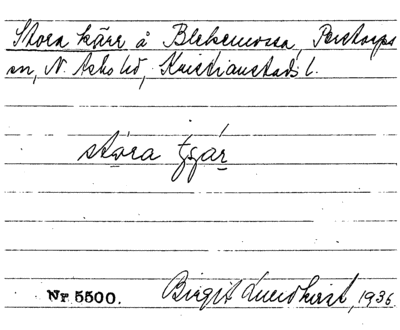 Stora kärr å Blekemossa, Perstorps
sn, N. Åsbo hd, Kristianstads l.
stóra
Nr 5500. Birgit Lundkvist, 1936